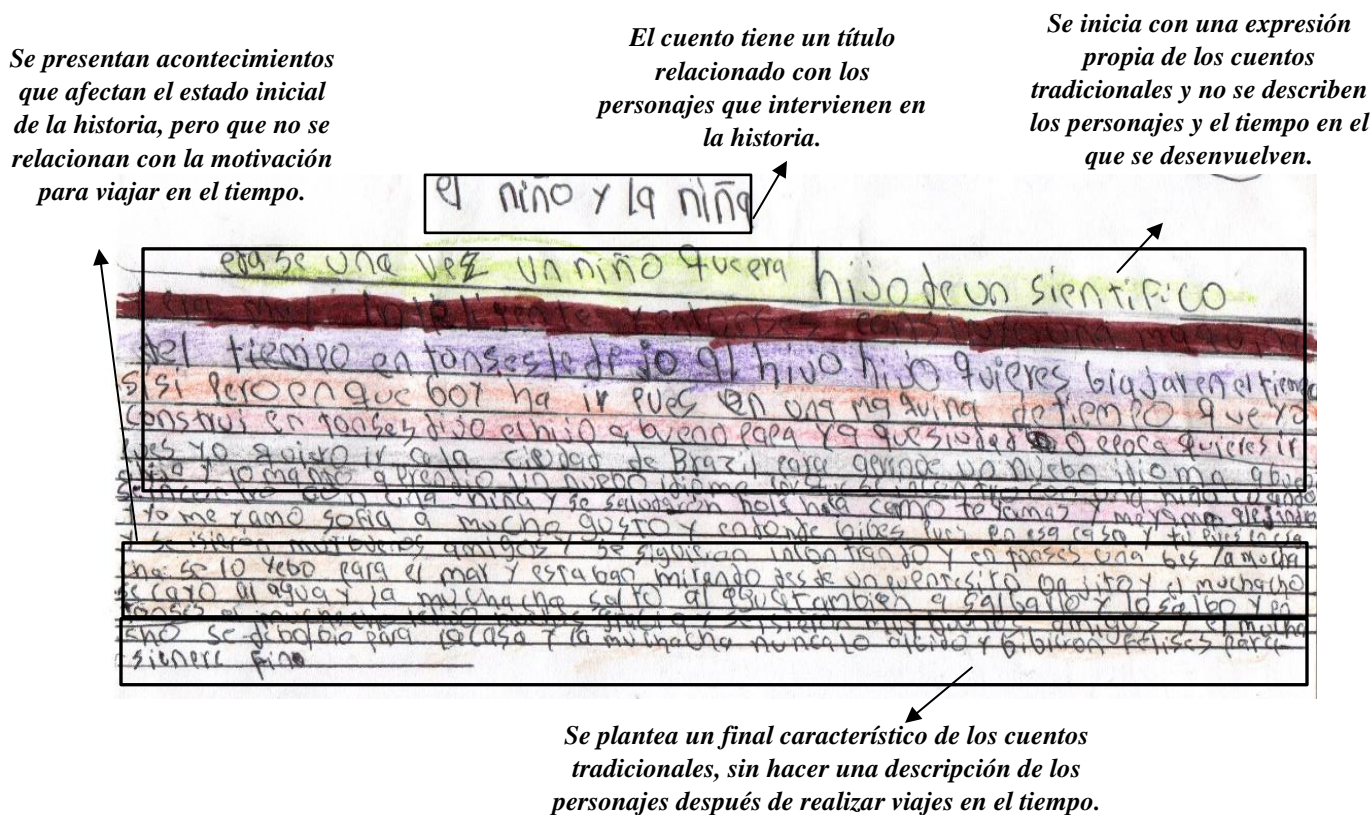 Se presentan acontecimientos
que afectan el estado inicial
de la historia, pero que no se
relacionan con la motivación
para viajar en el tiempo.
El cuento tiene un título
relacionado con los
personajes que intervienen en
la historia.
Se inicia con una expresión
propia de los cuentos
tradicionales y no se describen
los personajes y el tiempo en el
que se desenvuelven.
el niño y la niña
erase una vez un niño que era hijo de un sientifico
era mui inteligente y entonses construyo una maquina
del tiempo entonses le dejo al hijo hijo quieres biajar en el tiempo
si si pero en que boy ha ir pues en una maquina de tiempo que yo
construi en tonses dijo el hijo a bueno papa ya que siudad o epoca quieres ir
pues yo quiero ir a la ciudad de Brazil para aprende un nuebo idioma a bueno
y lo mando aprendio un nuebo idioma
se encontro con una niña y se saludaron hola hola como te yamas y me yamo alejandro
yo me yamo sofia a mucho gusto y en donde bibes pues en esa casa y tu pues en esa
y se isieron muy buenos amigos y se siguieron incontrando y en tonses una bes la mucha
cha se lo yebo para el mar y estaban mirando desde un puentesito bajito y el muchacho
se cayo al agua y la muchacha salto al agua tambien a salbarlo y lo salbo y en
tonses el muchacho muy buenos amigos y el mucha
sho se debolbio para la casa y la muchacha nunca lo olbido y bibieron felises para
siempre fin
Se plantea un final característico de los cuentos
tradicionales, sin hacer una descripción de los
personajes después de realizar viajes en el tiempo.